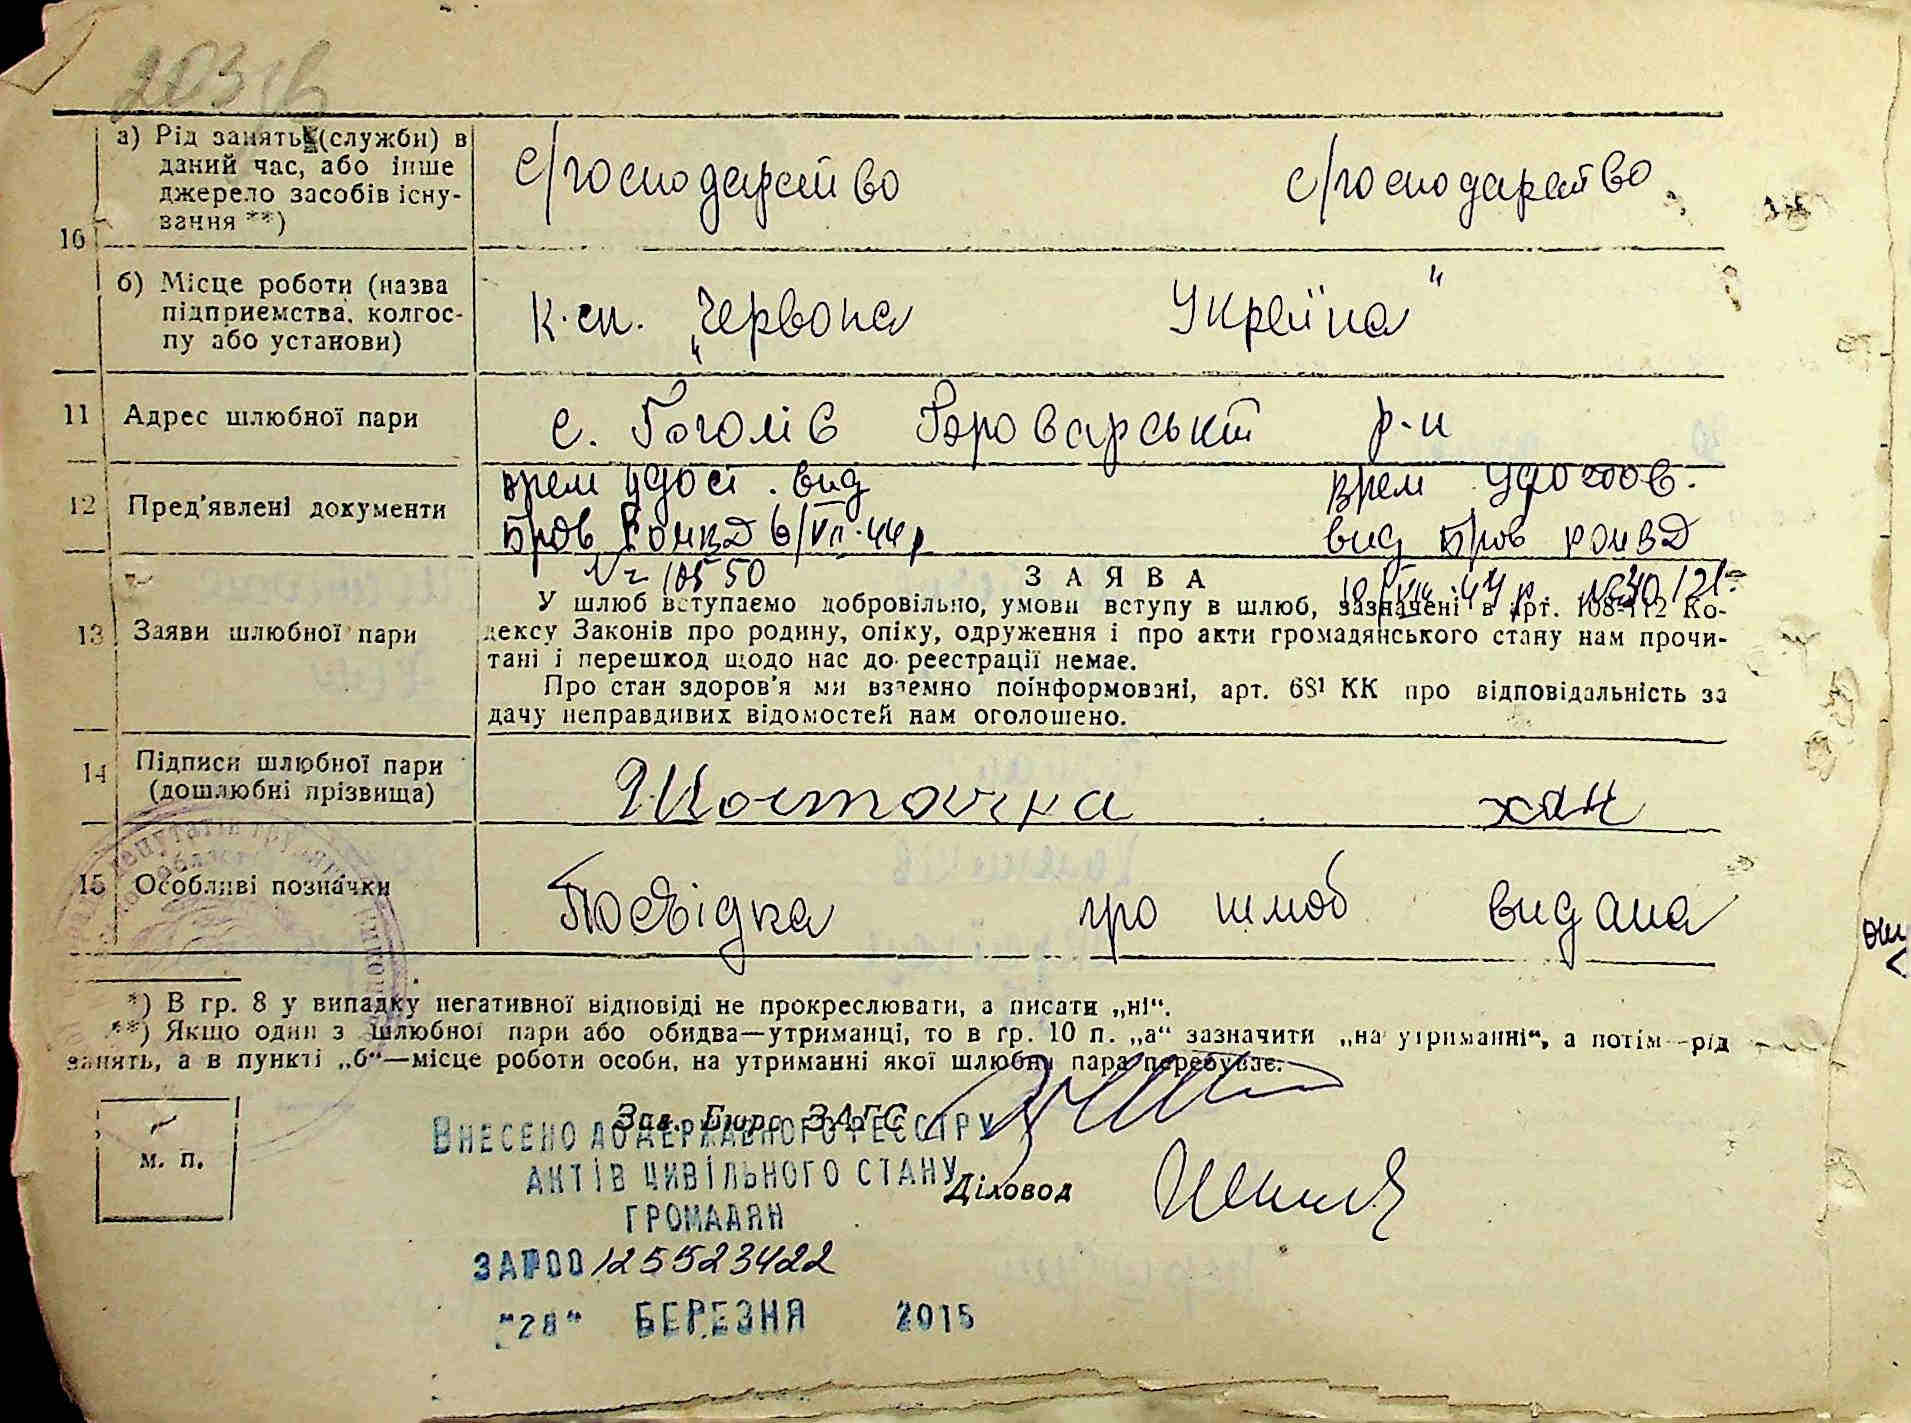 203
а) Рід занять (служби) в с/господарство с/господарство
даний час, або інше
джерело засобів існу-
вання **)
10
б) Місце роботи (назва
підприємства, колгос- к.сп. „Червона Україна"
пу або установи)
11 Адрес шлюбної пари с. Гоголів Броварський р-н
12 Пред'явлені документи врем удост. вид врем удостов.
Бров РОНКВД 6/VII-44р вид Бров РОНКВД
№ 10550
З А Я В А
13 Заяви шлюбної пари
У шлюб вступаємо добровільно, умови вступу в шлюб, зазначені в арт. 108-112 Ко-
дексу Законів про родину, опіку, одруження і про акти громадянського стану нам прочи-
тані і перешкод щодо нас до реєстрації немає.
Про стан здоров'я ми взаємно поінформовані, арт. 68¹ КК про відповідальність за
дачу неправдивих відомостей нам оголошено.
14 Підписи шлюбної пари
(дошлюбні прізвища) Хан
15 Особливі позначки Посвідка про шлюб видана
*) В гр. 8 у випадку негативної відповіді не прокреслювати, а писати „ні“.
**) Якщо один з шлюбної пари або обидва—утриманці, то в гр. 10 п. „а“ зазначити „на утриманні“, а потім—рід
занять, а в пункті „б“—місце роботи особи, на утриманні якої шлюбна пара перебуває.
Зав. Бюро ЗАГС
ВНЕСЕНО ДО ДЕРЖАВНОГО РЕЄСТРУ
АКТІВ ЦИВІЛЬНОГО СТАНУ
м. п.
Діловод
ГРОМАДЯН
ЗА №00125523422
"28" БЕРЕЗНЯ 2015